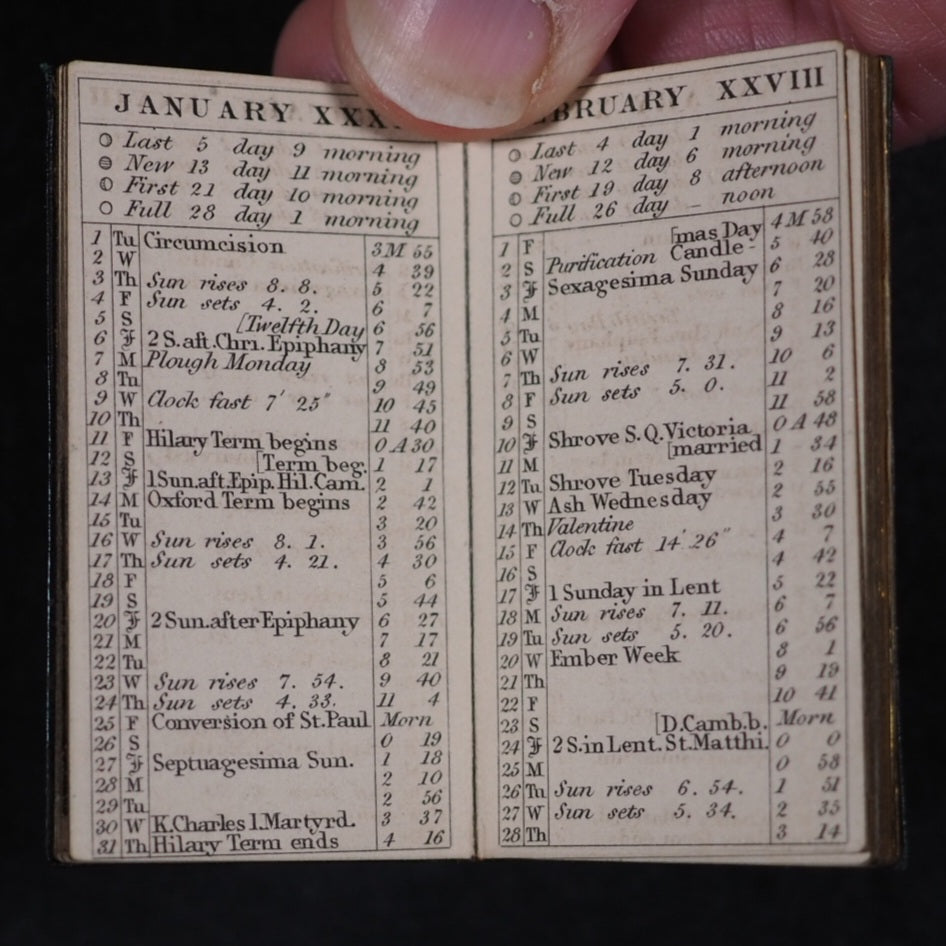 JANUARY XXX
Last 5 day 9 morning
New 13 day 11 morning
First 21 day 10 morning
Full 28 day 1 morning
1 Tu Circumcision 3M 55
2 W 4 39
3 Th Sun rises 8. 8. 5 22
4 F Sun sets 4. 2. 6 7
5 S [Twelfth Day 6 56
6 F 2 S. aft. Chri. Epiphany 7 51
7 M Plough Monday 8 53
8 Tu 9 49
9 W Clock fast 7' 25" 10 45
10 Th 11 40
11 F Hilary Term begins 0 A 30
12 S [Term beg. 1 17
13 F 1 Sun. aft. Epip. Hil. Cam. 2 1
14 M Oxford Term begins 2 42
15 Tu 3 20
16 W Sun rises 8. 1. 3 56
17 Th Sun sets 4. 21. 4 30
18 F 5 6
19 S 5 44
20 F 2 Sun. after Epiphany 6 27
21 M 7 17
22 Tu 8 21
23 W Sun rises 7. 54. 9 40
24 Th Sun sets 4. 33. 11 4
25 F Conversion of St. Paul Morn
26 S 0 19
27 F Septuagesima Sun. 1 18
28 M 2 10
29 Tu 2 56
30 W K. Charles I. Martyrd. 3 37
31 Th Hilary Term ends 4 16
BRUARY XXVIII
Last 4 day 1 morning
New 12 day 6 morning
First 19 day 8 afternoon
Full 26 day – noon
1 F [mas Day 4 M 58
2 S Purification Candle- 5 40
3 F Sexagesima Sunday 6 28
4 M 7 20
5 Tu 8 16
6 W 9 13
7 Th Sun rises 7. 31. 10 6
8 F Sun sets 5. 0. 11 2
9 S 11 58
10 F Shrove S. Q. Victoria 0 A 48
11 M [married 1 34
12 Tu Shrove Tuesday 2 16
13 W Ash Wednesday 2 55
14 Th Valentine 3 30
15 F Clock fast 14' 26" 4 7
16 S 4 42
17 F 1 Sunday in Lent 5 22
18 M Sun rises 7. 11. 6 7
19 Tu Sun sets 5. 20. 6 56
20 W Ember Week 8 1
21 Th 9 19
22 F 10 41
23 S [D. Camb. b. Morn
24 F 2 S. in Lent. St. Matthi. 0 0
25 M 0 58
26 Tu Sun rises 6. 54. 1 51
27 W Sun sets 5. 34. 2 35
28 Th 3 14